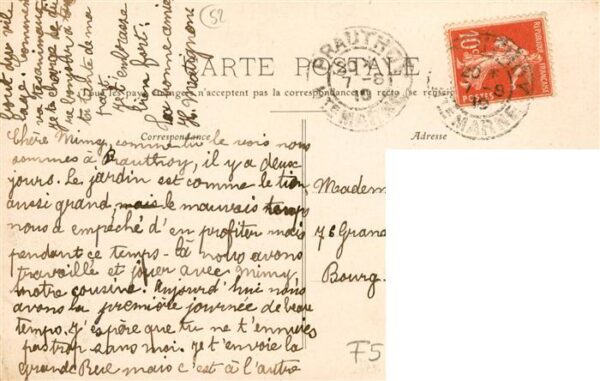 52
CARTE POSTALE
Tous les pays étrangers n'acceptent pas la correspondance au recto se renseigner
Correspondance
Adresse
PRAUTHOY
20
7-8
10
HTE MARNE
REPUBLIQUE FRANÇAISE
POSTES
10c
Chère Mimy, comme tu le vois nous
sommes à Prauthoy, il y a deux
jours. Le jardin est comme le tien
aussi grand, mais le mauvais temps
nous a empêché d'en profiter mais
pendant ce temps-là nous avons
travaillé et jouer avec Mimy
notre cousine. Aujourd'hui nous
avons la première journée de beau
temps. J'espère que tu ne t'ennuies
pas trop sans moi. Je t'envoie la
grande Rue mais c'est à l'autre
bout du vil
lage.
la change de
ta tante de ma
part.
Je t'embrasse
bien fort.
Ta bonne amie
Madem
76 Grand
Bourg.
F5